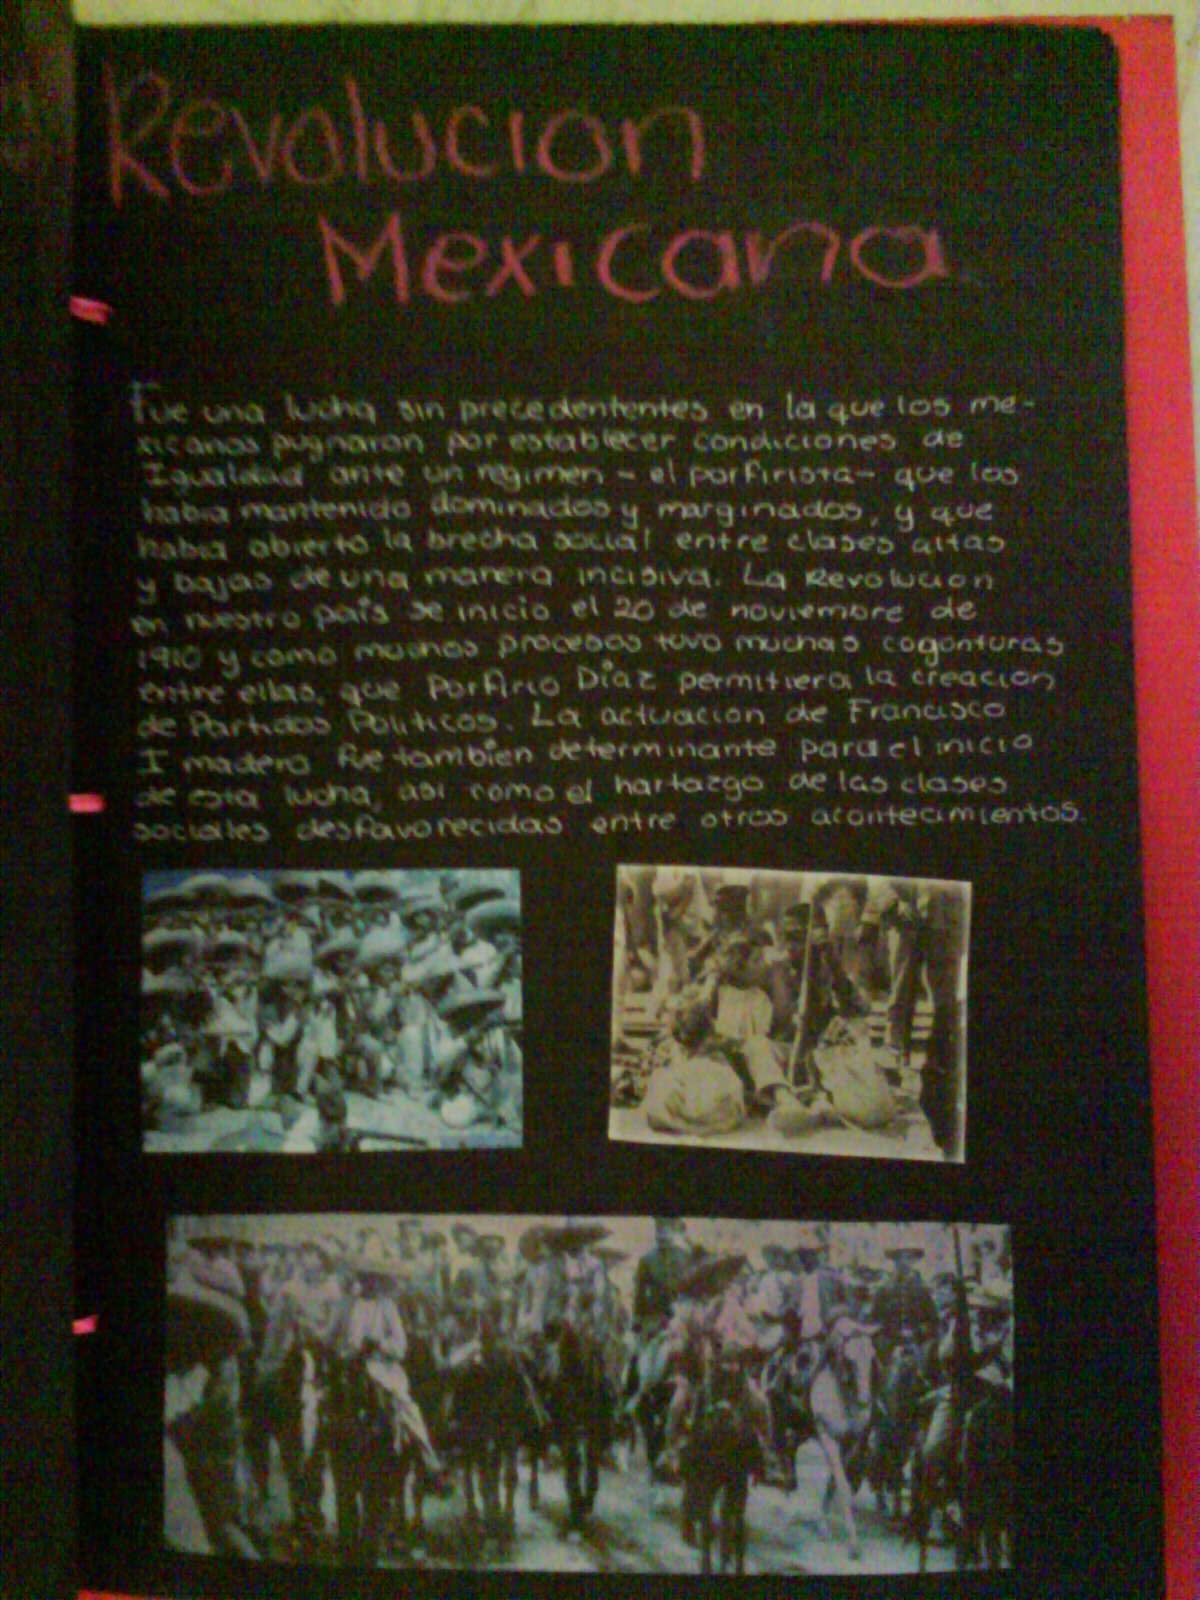 Revolucion
Mexicana
Fue una lucha sin precedententes en la que los me-
xicanos pugnaron por establecer condiciones de
Igualdad ante un regimen - el porfirista - que los
habia mantenido dominados y marginados, y que
habia abierto la brecha social entre clases altas
y bajas de una manera incisiva. La Revolucion
en nuestro país se inicio el 20 de noviembre de
1910 y como muchos procesos tuvo muchas cogonturas
entre ellas, que Porfirio Díaz permitiera la creacion
de Partidos Politicos. La actuacion de Francisco
I madero fue tambien determinante para el inicio
de esta lucha, asi como el hartazgo de las clases
sociales desfavorecidas entre otros acontecimientos.